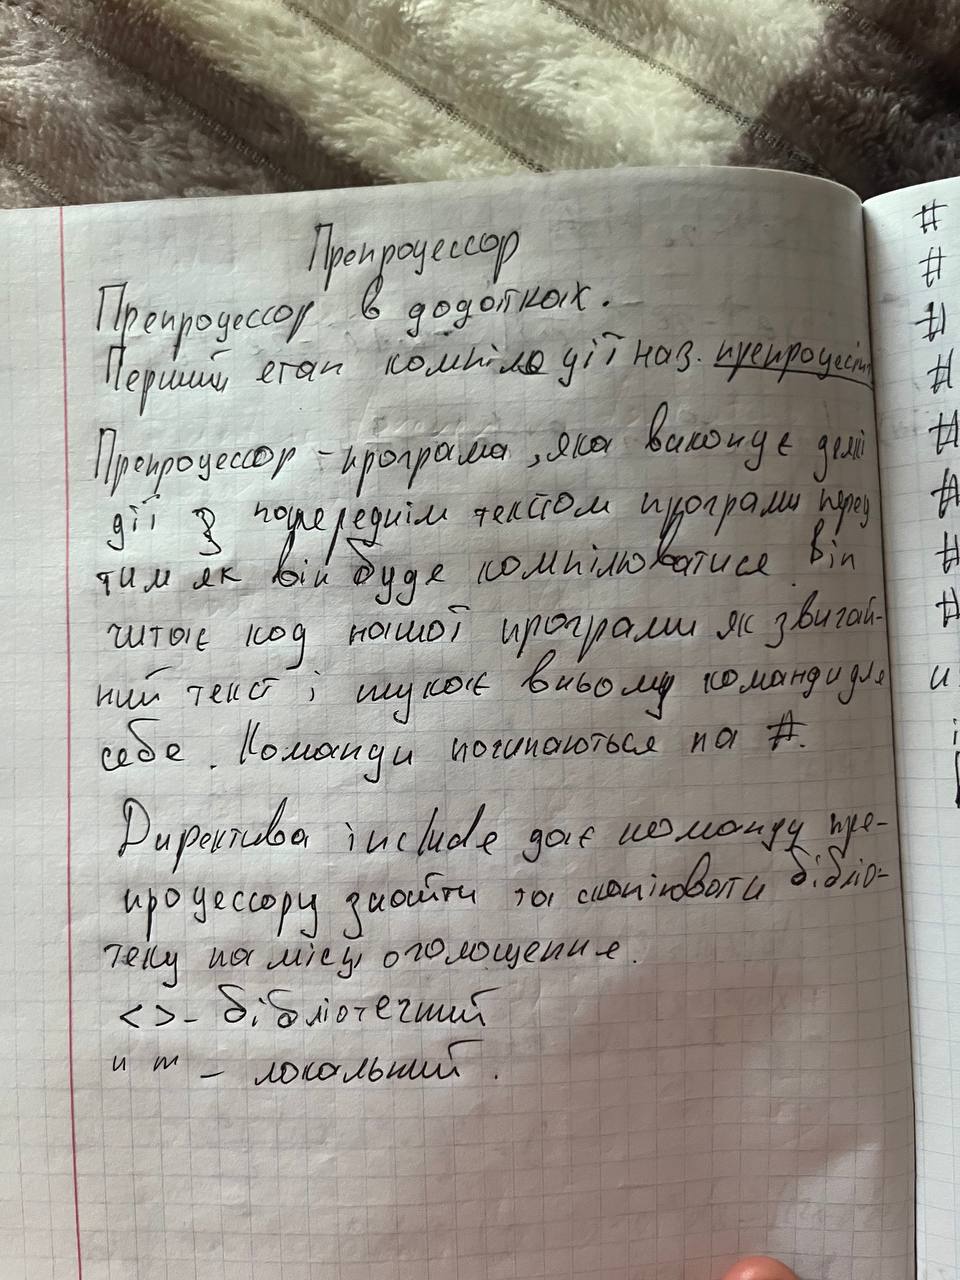 Препроцессор
Препроцессор в додотках.
Перший етап компіляції наз. препроцесінг
Препроцессор - програма, яка виконує деякі
дії з попереднім текстом програми перед
тим як він буде компілюватися. Він
читає код нашої програми як звичай-
ний текст і шукає в ньому команди для
себе. Команди починаються на #.
Директива include дає команду пре-
процессору знайти та скопіювати бібліо-
теку на місці оголощення.
< > - бібліотечний
" " - локальний.
#
#
#
#
#
#
#
#